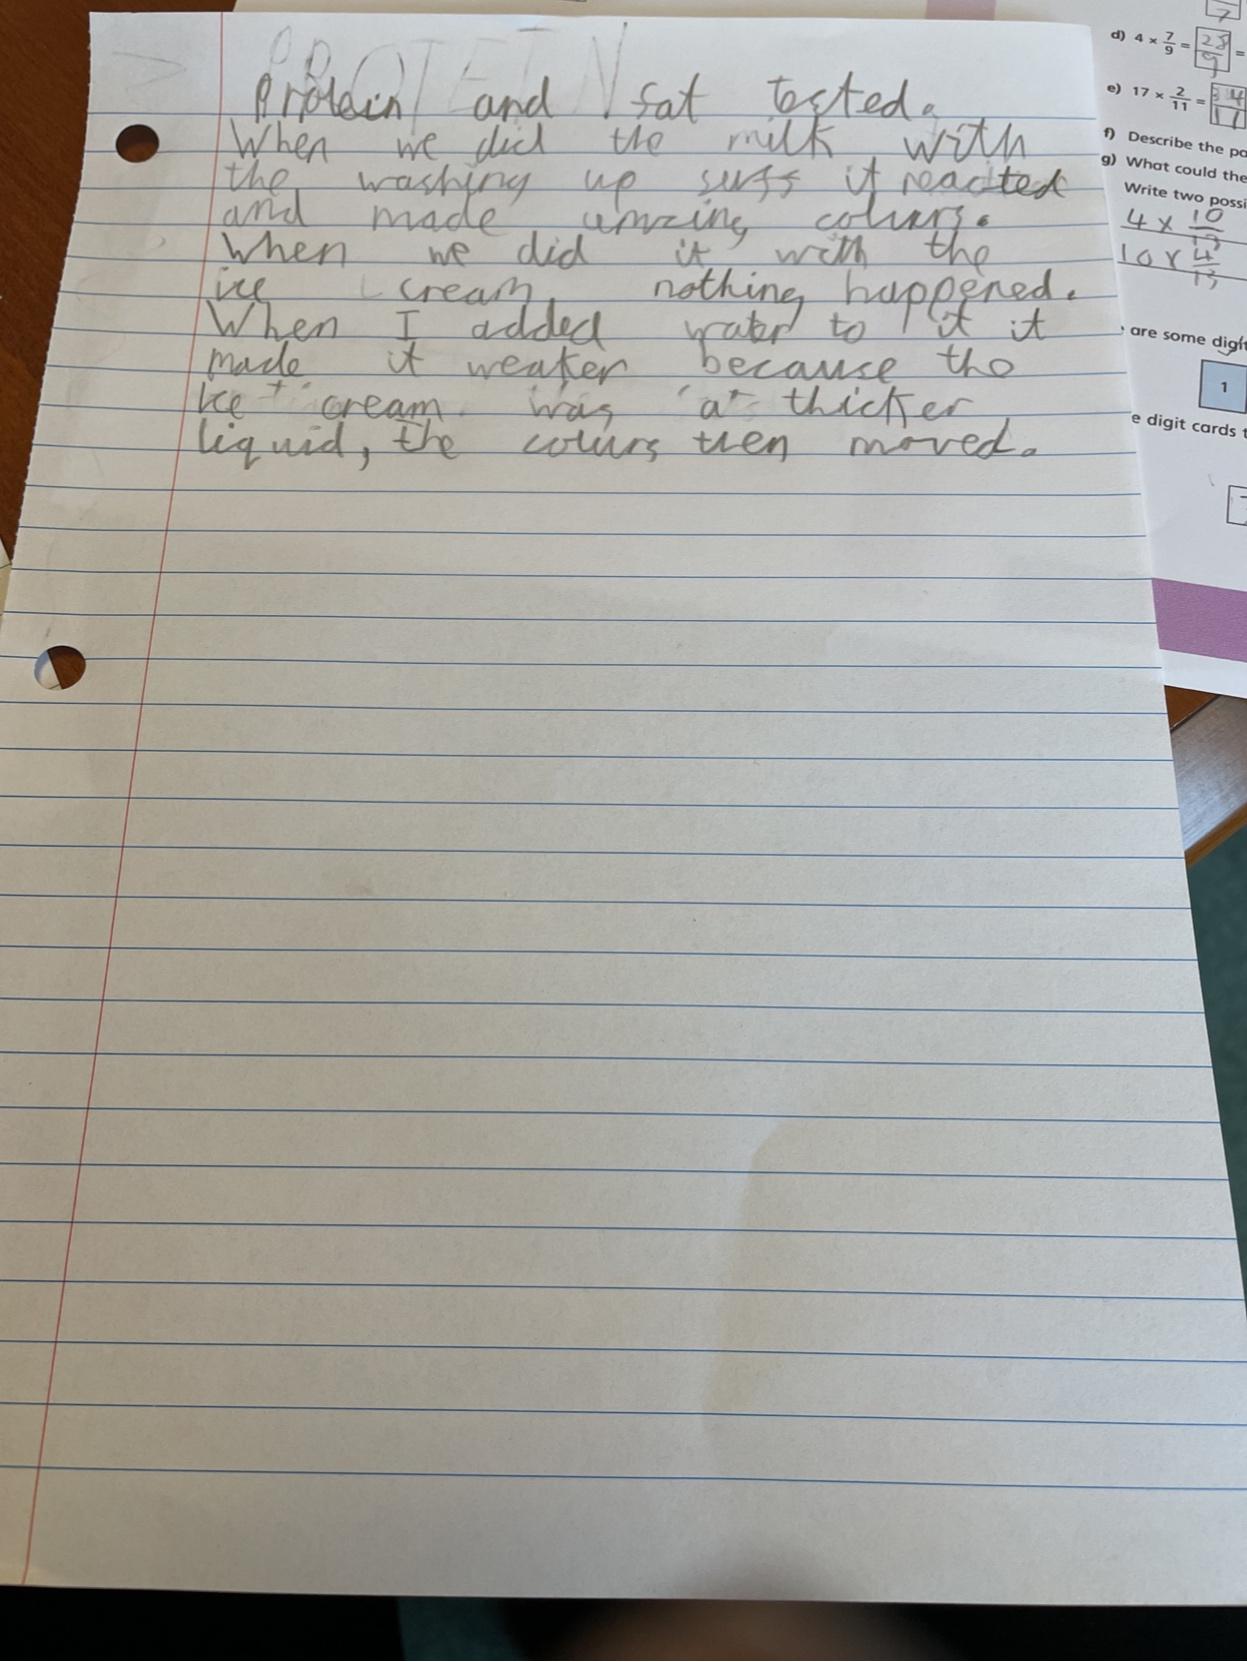 PROTEIN
Protein and fat tested.
When we did the milk with
the washing up suff it reacted
and made amazing colurs.
When we did it with the
ice cream nothing happened.
When I added water to it it
made it weaker because the
ice cream was a thicker
liquid, the colurs then moved.
7
d) 4 × 7/9 = 28/9 =
e) 17 × 2/11 = 34/11
f) Describe the pa
g) What could the
Write two possi
4 × 10/13
10 × 4/13
are some digit
1
e digit cards t